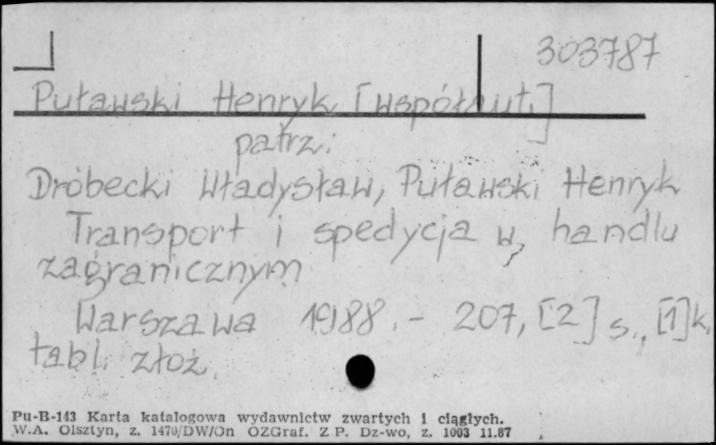 303787
Puławski Henryk [współaut.]
patrz:
Dróbecki Władysław, Puławski Henryk
Transport i spedycja w handlu
zagranicznym
Warszawa 1988. - 207, [2] s., [1] k.
tabl. złoż.
Pu-B-143 Karta katalogowa wydawnictw zwartych i ciągłych.
W.A. Olsztyn, z. 1470/DW/On OZGraf. Z P. Dz-wo, z. 1003 11.87